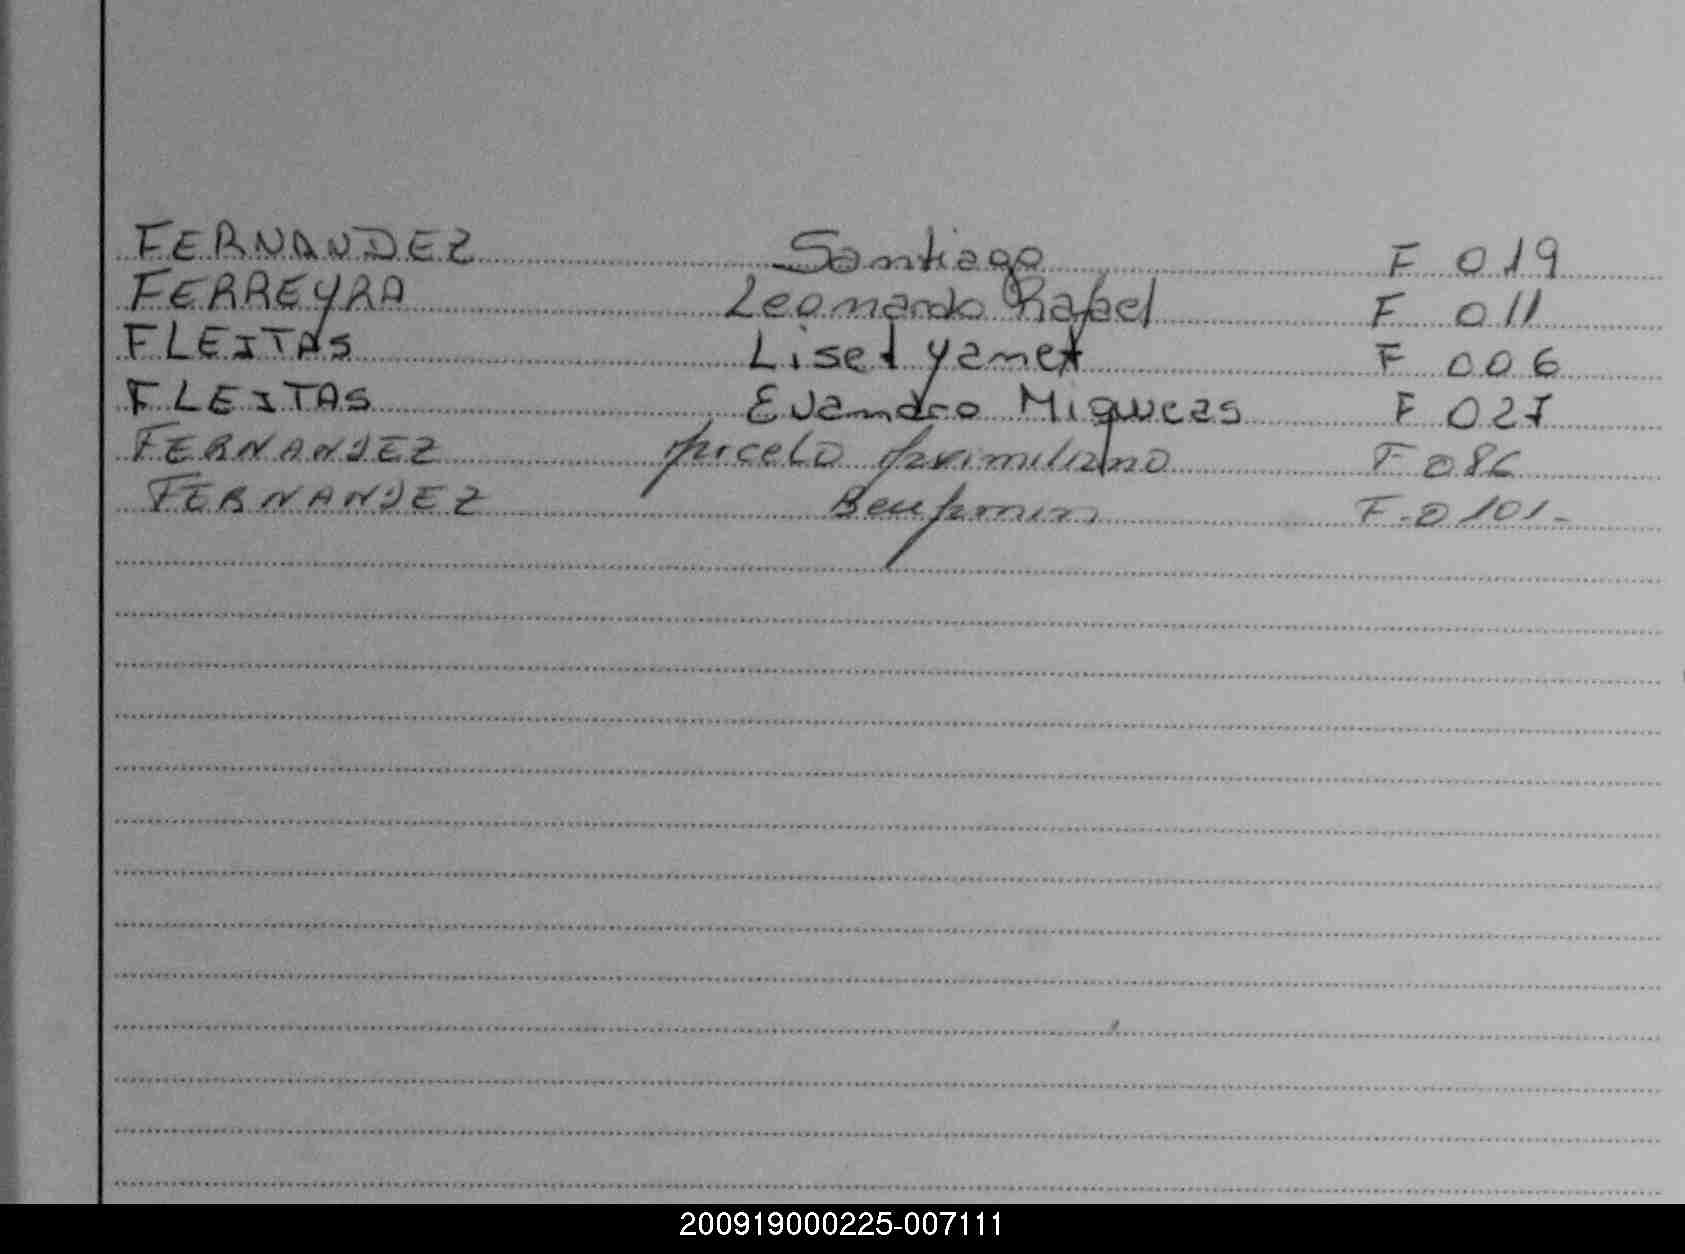 FERNANDEZ Santiago F 019
FERREYRA Leonardo Rafael F 011
FLEITAS Lised yanet F 006
FLEITAS Evandro Miqueas F 027
FERNANDEZ F 086
FERNANDEZ Benjamin F-0101-
200919000225-007111